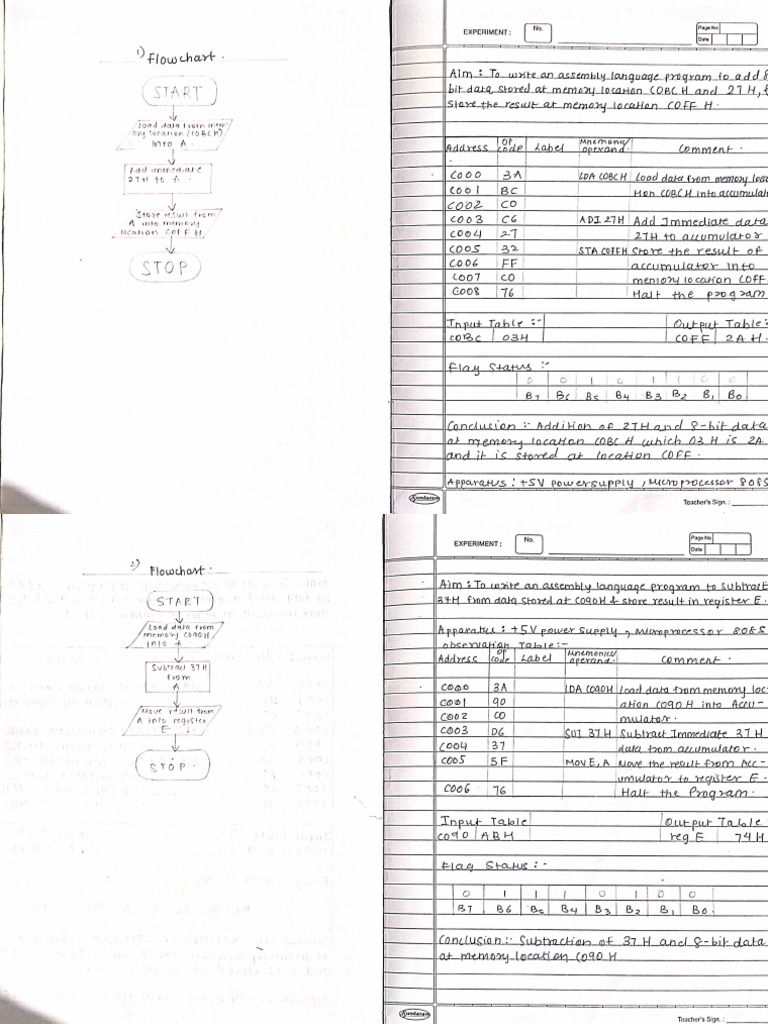 1) Flowchart.
START
Load data from mem
ory location (COBCH)
Into A.
Add immediate
27H to A.
Store result from
A into memory
location COFFH
STOP
EXPERIMENT :
No.
Page No
Date
Aim : To write an assembly language program to add 8
bit data stored at memory location COBC H and 27 H,
Store the result at memory location COFF H.
Address | OP code | Label | Mnemonic/operand. | Comment.
C000 3A LDA COBCH Load data from memory loca
C001 BC tion COBCH into accumulat
C002 CO
C003 C6 ADI 27H Add Immediate data
C004 27 27H to accumulator
C005 32 STA COFFH Store the result of
C006 FF accumulator into
C007 CO memory location COFF
C008 76 Halt the program
Input Table :- Output Table:
COBC 03H COFF 2A H.
Flag Status :-
0 0 1 0 1 1 0 0
B7 B6 B5 B4 B3 B2 B1 B0
Conclusion :- Addition of 27H and 8-bit data
at memory location COBC H which 03 H is 2A
and it is stored at location COFF.
Apparatus : +5V power supply, Microprocessor 8085
Sundaram
Teacher's Sign. :
2) Flowchart.
START
Load data from
memory C090H
into A
Subtract 37H
from
A
Move result from
A into register
E
STOP
EXPERIMENT :
No.
Page No
Date
Aim : To write an assembly language program to subtract
37H from data stored at C090H & store result in register E.
Apparatus : +5V power supply, Microprocessor 8085
observation Table:-
Address | OP code | Label | Mnemonic/operand. | Comment.
C000 3A LDA C090H load data from memory loc-
C001 90 ation C090 H into Accu-
C002 CO mulator.
C003 D6 SUI 37H Subtract Immediate 37 H
C004 37 data from accumulator.
C005 5F MOV E, A Move the result from Acc-
umulator to register E.
C006 76 Halt the Program.
Input Table Output Table
C090 ABH reg E 74 H
Flag Status :-
0 1 1 1 0 1 0 0
B7 B6 B5 B4 B3 B2 B1 B0
Conclusion :- Subtraction of 37 H and 8-bit data
at memory location C090 H
Sundaram
Teacher's Sign. :